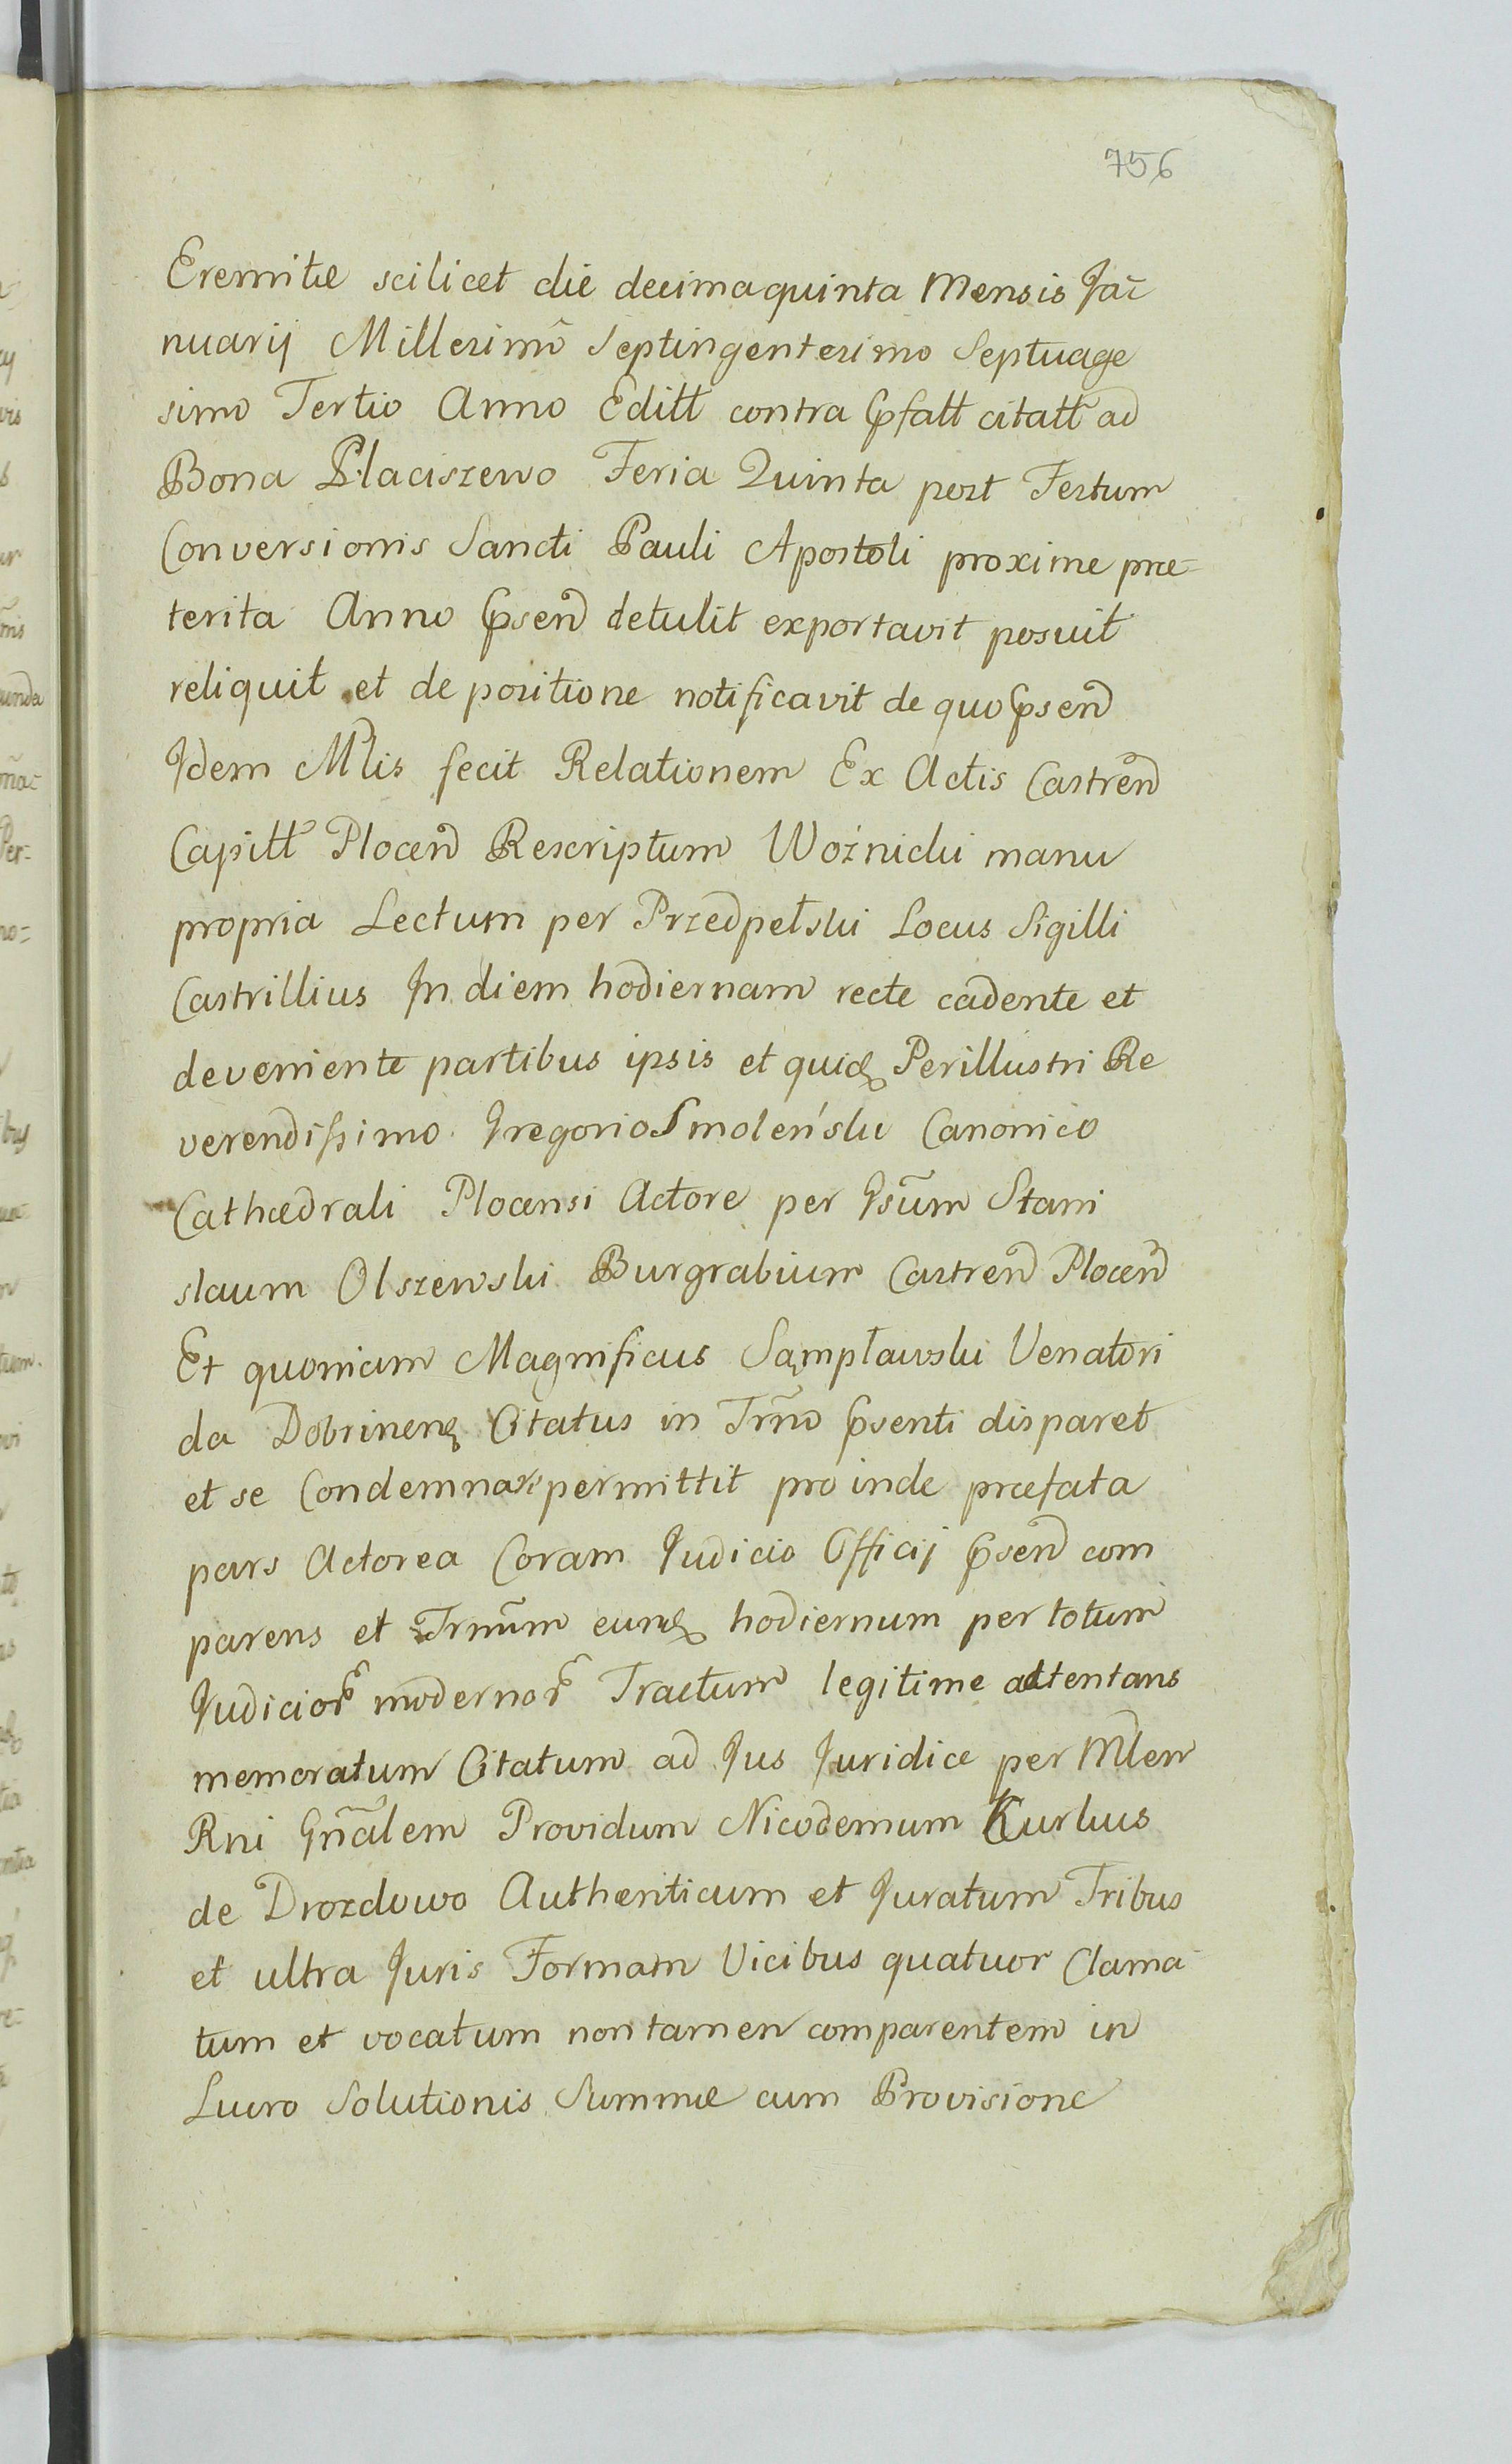 756
Eremitæ scilicet die decimaquinta Mensis Ja=
nuarij Millesimo Septingentesimo Septuage
simo Tertio Anno Editt contra Ppfatt citatt ad
Bona Placiszewo Feria Quinta post Festum
Conversionis Sancti Pauli Apostoli proxime præ=
terita Anno Ppsend detulit exportavit posuit
reliquit et de positione notificavit de quo Ppsend
Idem Mlis fecit Relationem Ex Actis Castrend
Capitt Plocend Rescriptum Woźnicki manu
propria Lectum per Przedpełski Locus Sigilli
Castrillius In diem hodiernam recte cadente et
deveniente partibus ipsis et quidem Perillustri Re
verendissimo Gregorio Smoleński Canonico
Cathædrali Plocensi Actore per Gsum Stani
slaum Olszewski Burgrabium Castrend Plocend
Et quoniam Magnificus Sąmpławski Venatori
da Dobrinens Citatus in Trno Ppsenti disparet
et se Condemnari permittit pro inde præfata
pars Actorea Coram Judicio Officij Ppsend com
parens et Trnum eundem hodiernum per totum
Judiciorum modernorum Tractum legitime attentans
memoratum Citatum ad Jus Juridice per Mlem
Rni Gnalem Providum Nicodemum Kurkus
de Drozdowo Authenticum et Juratum Tribus
et ultra Juris Formam Vicibus quatuor Clama=
tum et vocatum non tamen comparentem in
Lucro Solutionis Summæ cum Provisione